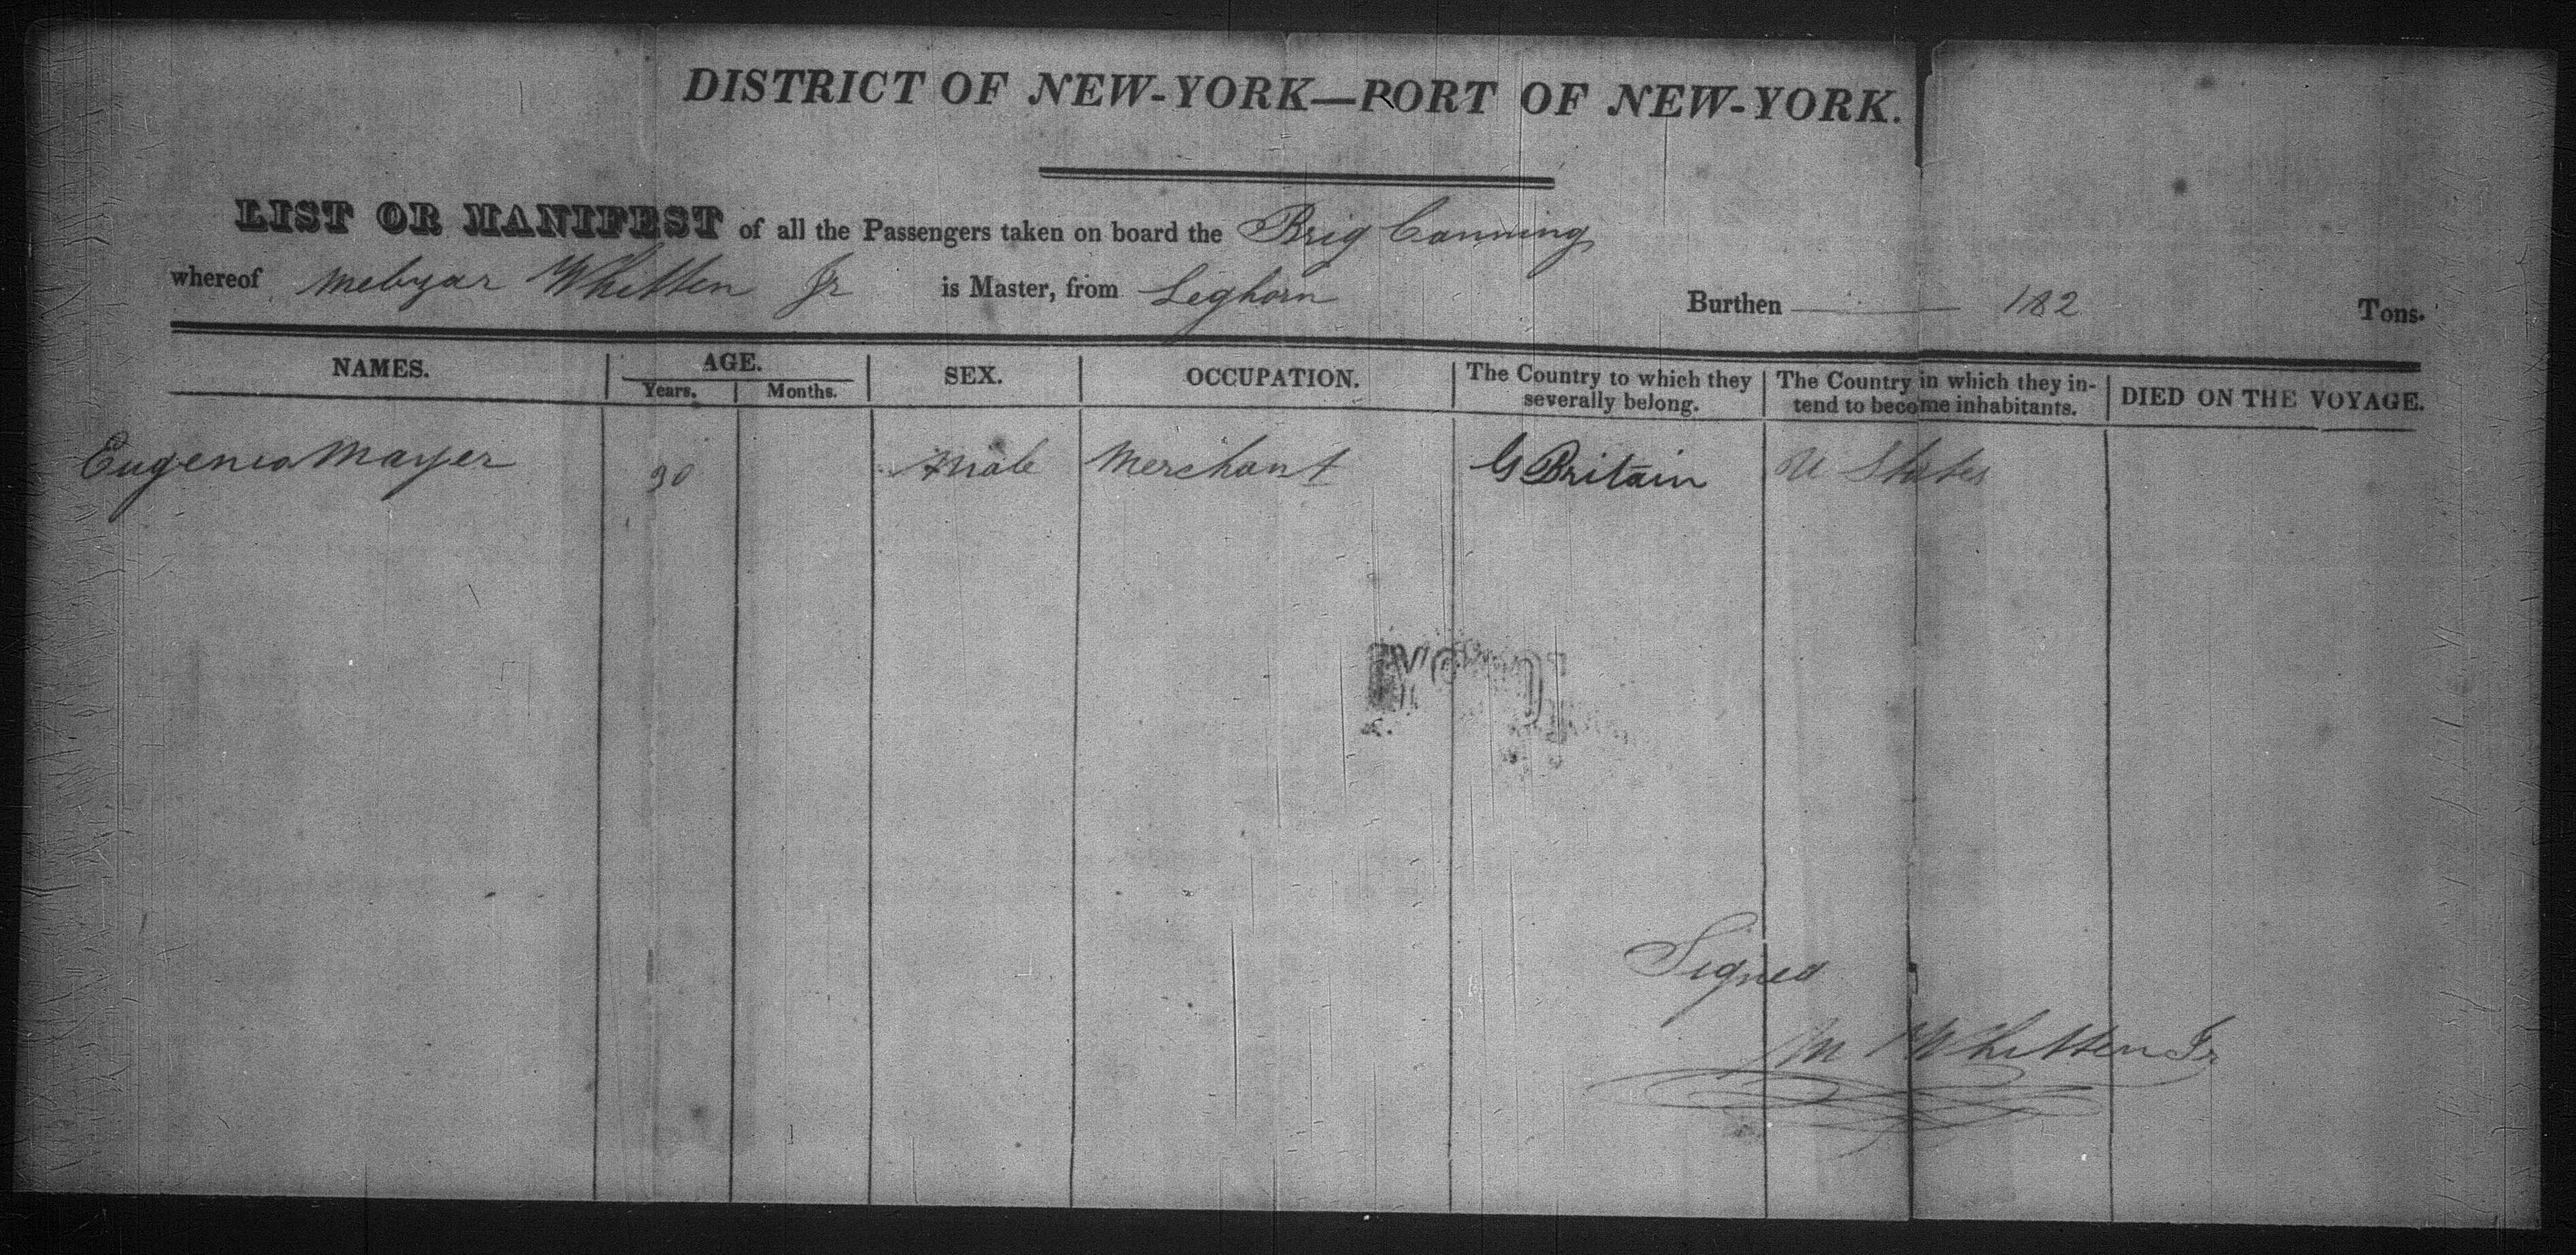 DISTRICT OF NEW-YORK—PORT OF NEW-YORK.
LIST OR MANIFEST of all the Passengers taken on board the Brig Canning
whereof Mebzar Whitten Jr is Master, from Leghorn Burthen 182 Tons.
NAMES. AGE. SEX. OCCUPATION. The Country to which they severally belong. The Country in which they intend to become inhabitants. DIED ON THE VOYAGE.
Years. Months.
Eugenio Mayer 30 Male Merchant G Britain U States
Signed
M Whitten Jr